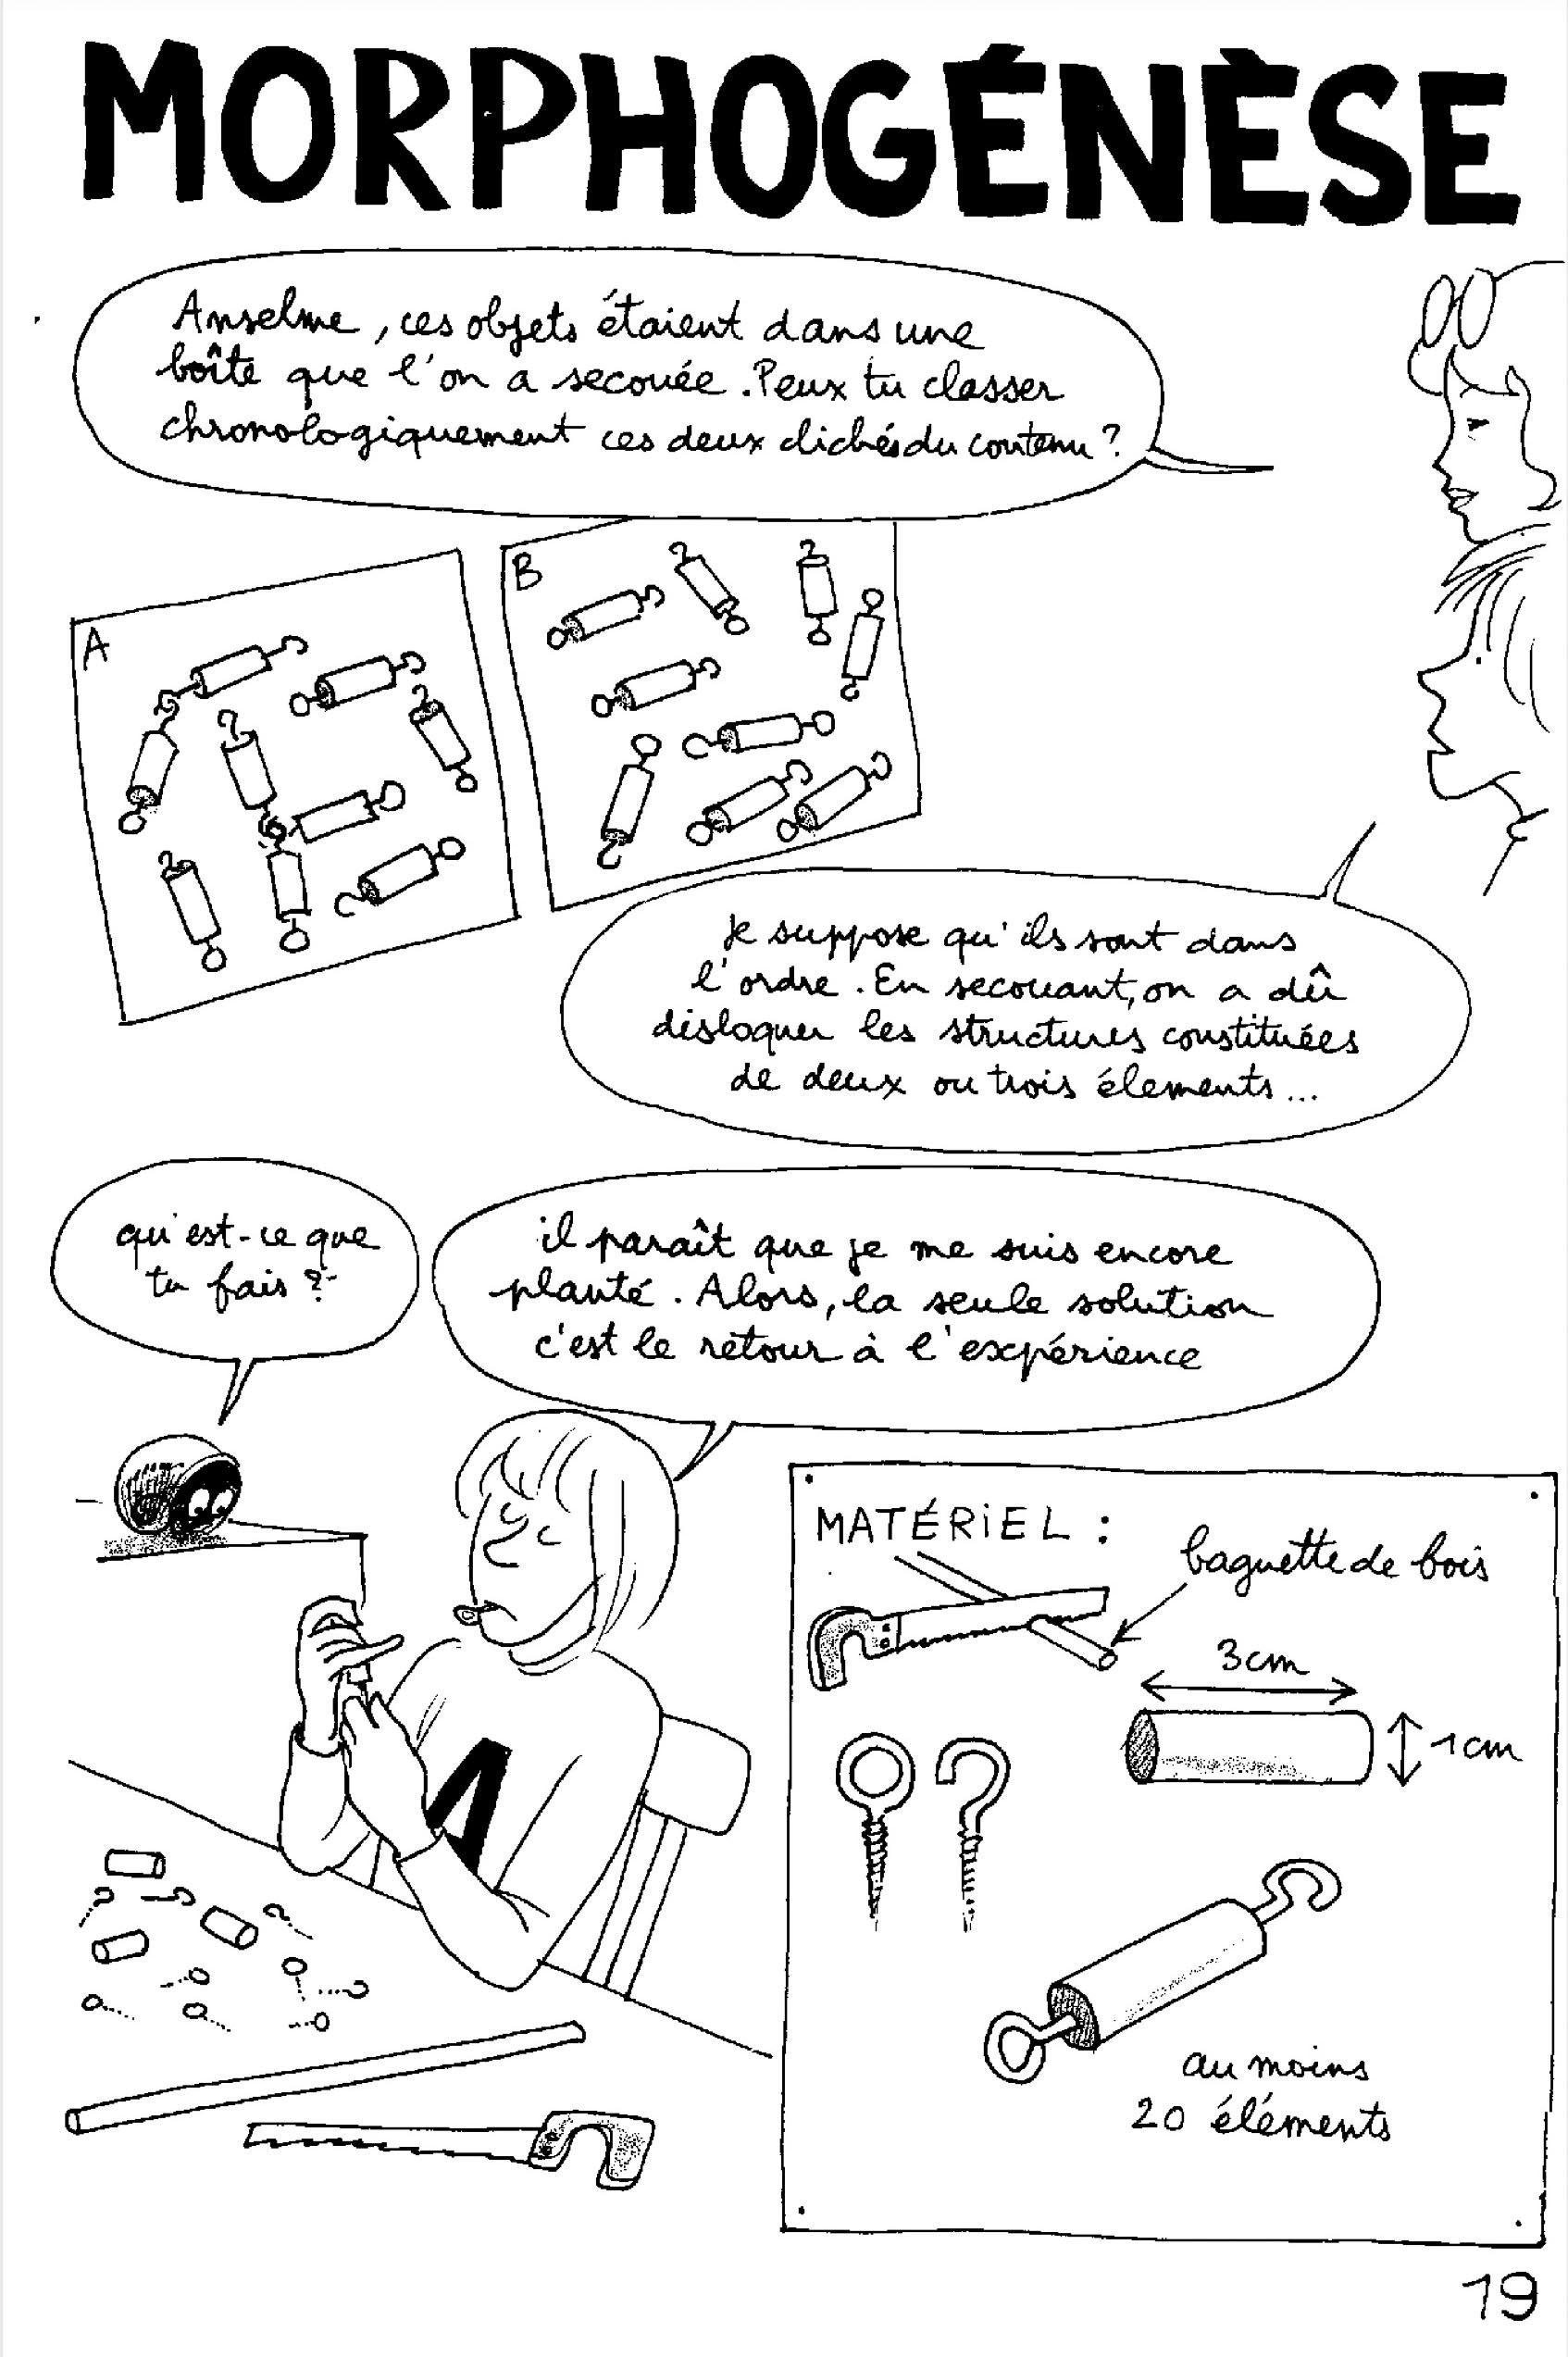 MORPHOGÉNÈSE
Anselme, ces objets étaient dans une
boîte que l'on a secouée. Peux tu classer
chronologiquement ces deux clichés du contenu ?
A
B
Je suppose qu'ils sont dans
l'ordre. En secouant, on a dû
disloquer les structures constituées
de deux ou trois élements...
qu'est-ce que
tu fais ?
il paraît que je me suis encore
planté. Alors, la seule solution
c'est le retour à l'expérience
MATÉRiEL :
baguette de bois
3cm
1cm
au moins
20 éléments
19